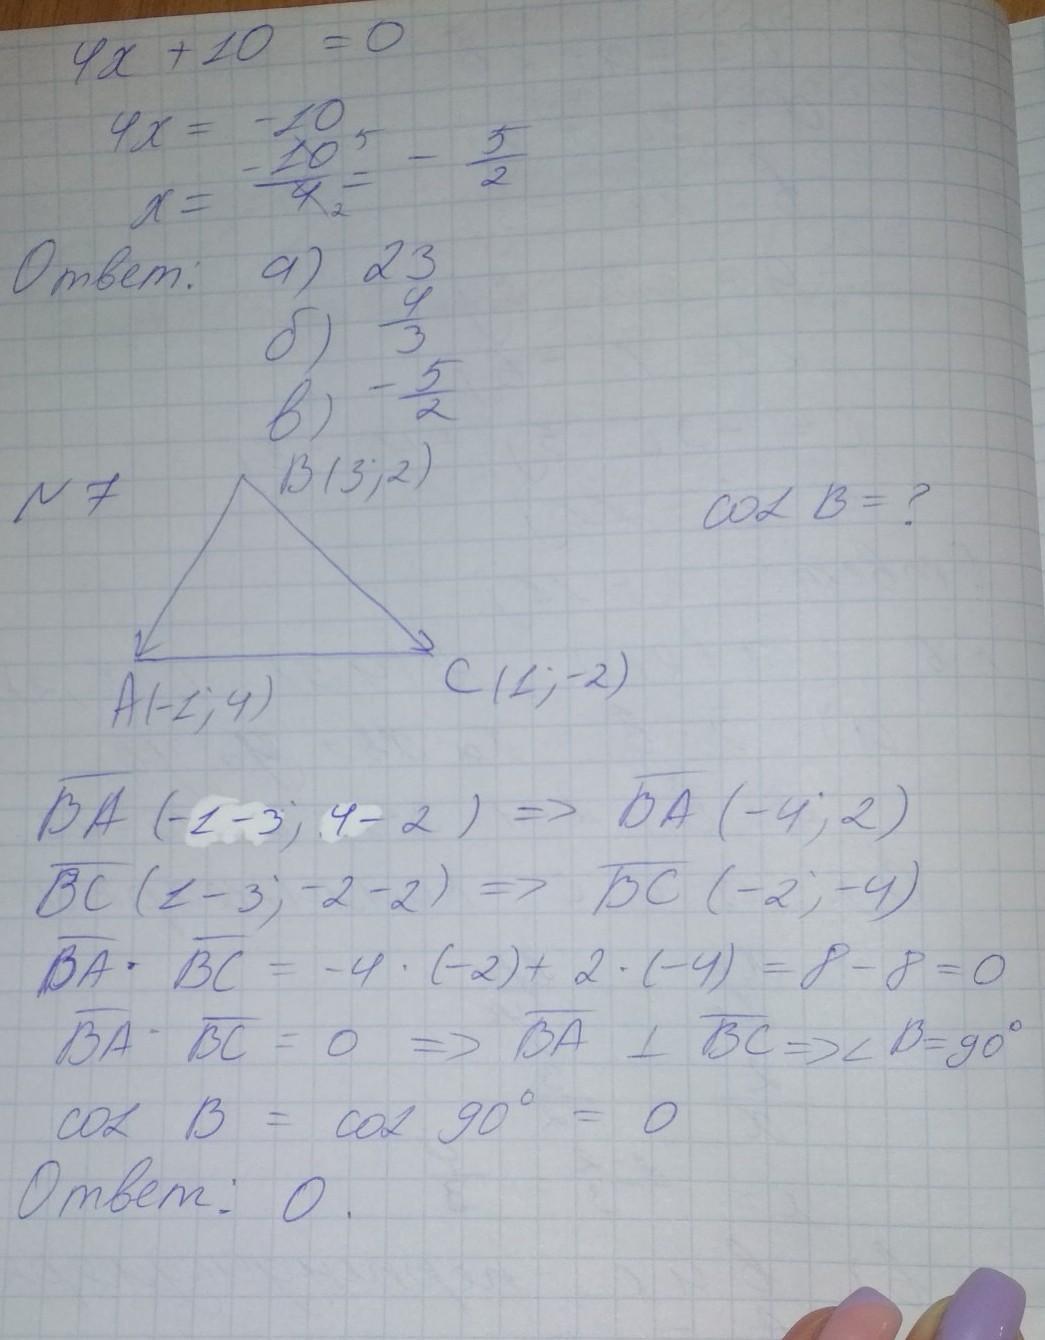 4x + 10 = 0
4x = -10
x = -10/4 = - 5/2
Ответ: а) 23
б) 4/3
в) - 5/2
N 7
B(3; 2)
cos B = ?
A(-1; 4)
C(1; -2)
BA (-1-3; 4-2) => BA (-4; 2)
BC (1-3; -2-2) => BC (-2; -4)
BA · BC = -4 · (-2) + 2 · (-4) = 8 - 8 = 0
BA · BC = 0 => BA ⊥ BC => ∠ B = 90°
cos B = cos 90° = 0
Ответ: 0.